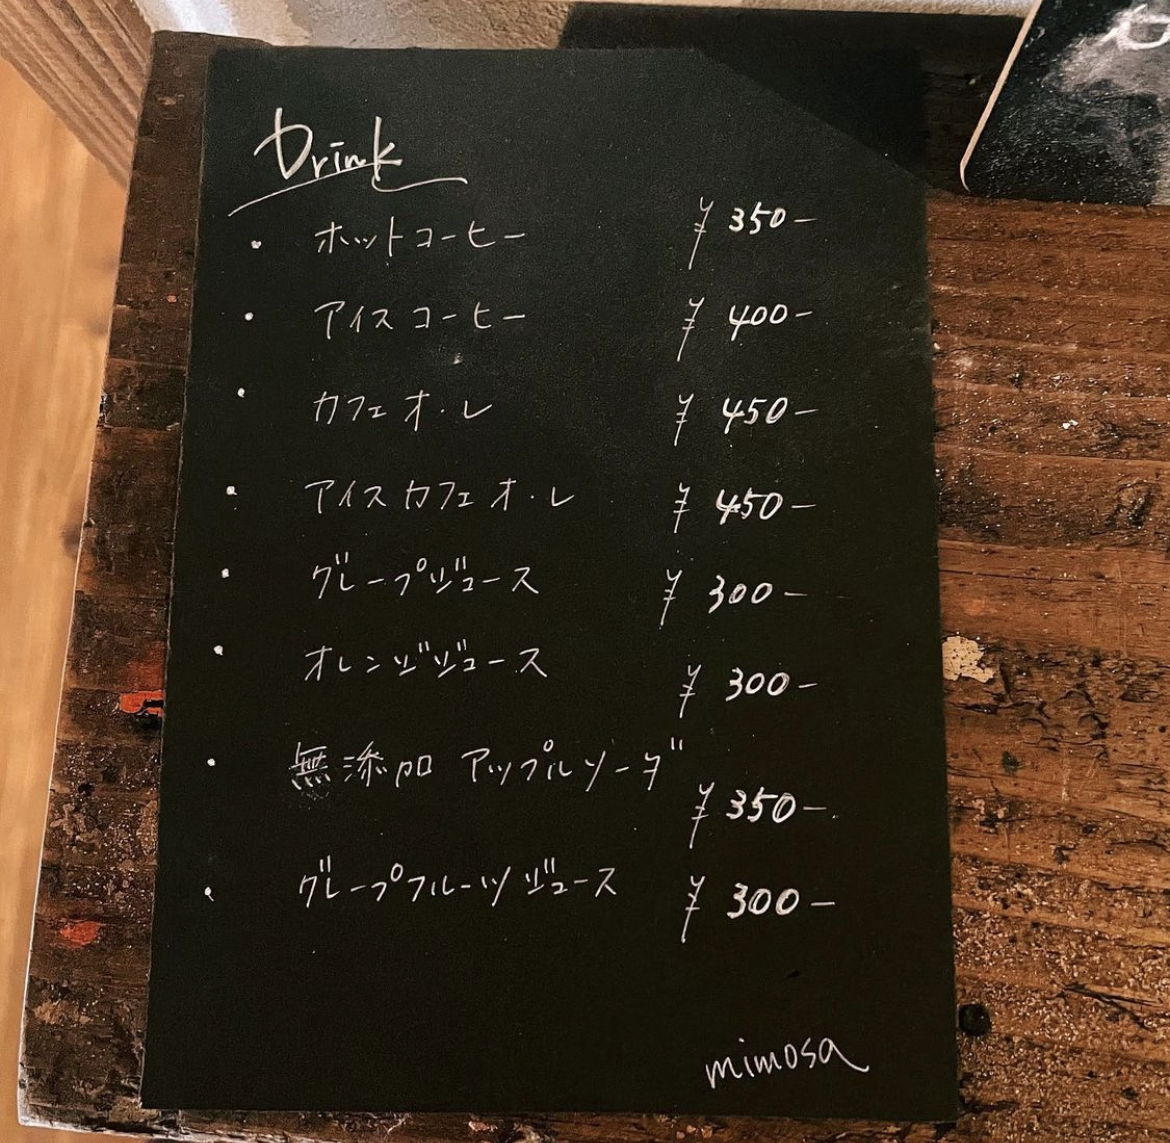 Drink
・ ホットコーヒー ¥350-
・ アイスコーヒー ¥400-
・ カフェオ・レ ¥450-
・ アイスカフェオ・レ ¥450-
・ グレープジュース ¥300-
・ オレンジジュース ¥300-
・ 無添加 アップルソーダ ¥350-
・ グレープフルーツジュース ¥300-
mimosa